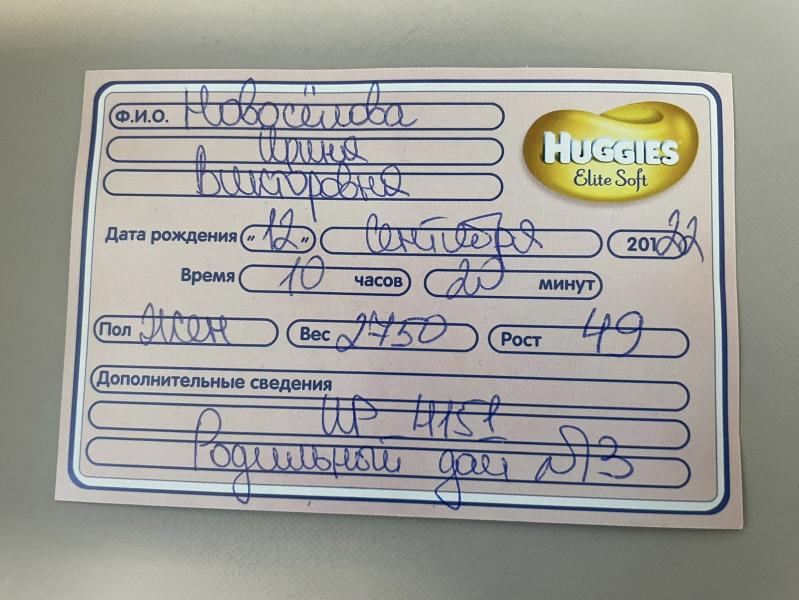 Ф.И.О. Новосёлова
Ирина
Викторовна
HUGGIES
Elite Soft
Дата рождения „ 12 „ сентября 20122
Время 10 часов 20 минут
Пол жен Вес 2750 Рост 49
Дополнительные сведения
ИР 4151
Родильный дом №3